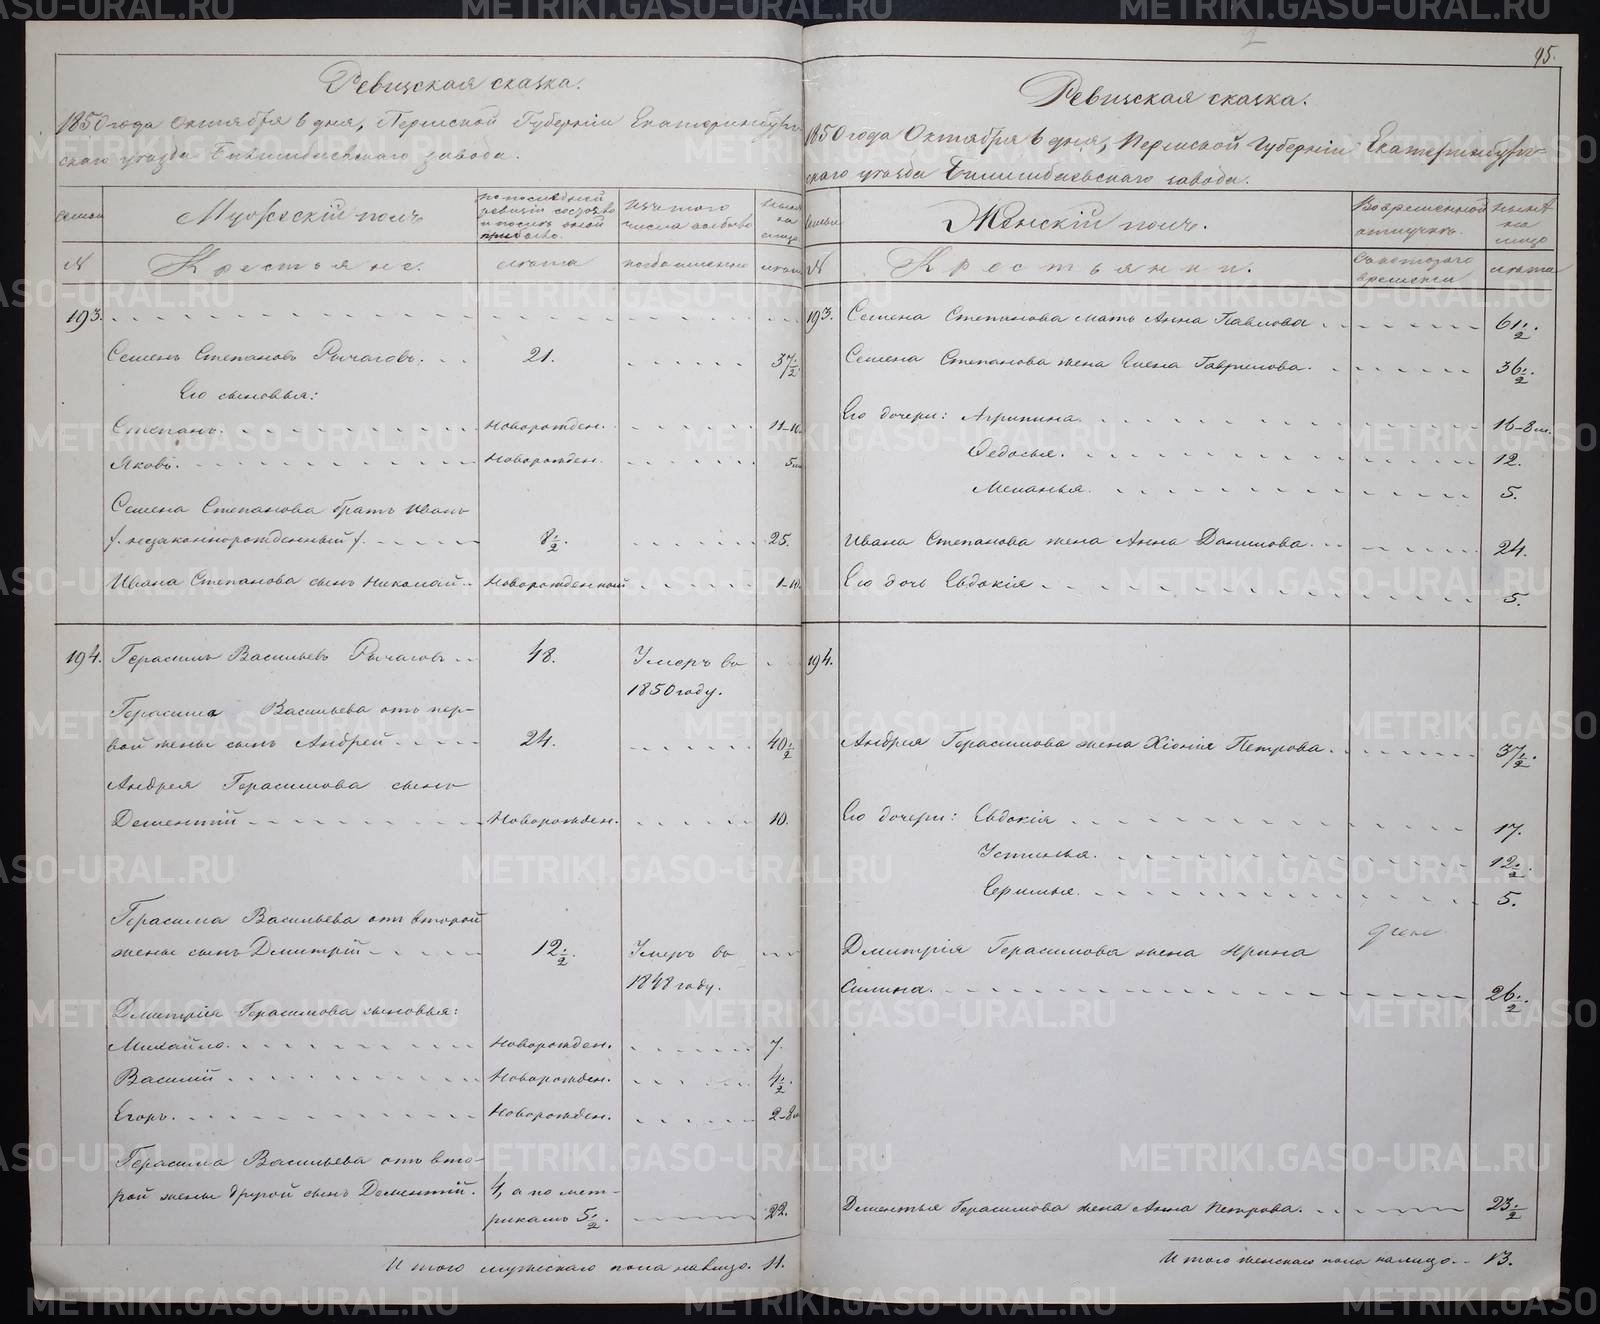 95.
Ревизская сказка.
1850 года Октября 6 дня, Пермской Губерніи Екатеринбург-
скаго уѣзда Билимбаевскаго завода.
семьи
Мужескій полъ
по послѣдней
ревизіи состояло
и послѣ оной
прибыло.
изъ того
числа выбыло
нынѣ
на
лицо
№
Крестьяне.
лѣта
когда именно
лѣта
193.
Семенъ Степановъ Рычаговъ. 21. 37 1/2.
Его сыновья:
Степанъ. Новорожден. 11-10.
Яковъ. Новорожден. 5 м
Семена Степанова братъ Иванъ
/. незаконнорожденный /. 8 1/2. 25.
Ивана Степанова сынъ Николай. Новорожденный 1-10.
194. Герасимъ Васильевъ Рычаговъ 48. Умеръ въ
1850 году.
Герасима Васильева отъ пер-
вой жены сынъ Андрей 24. 40 1/2
Андрея Герасимова сынъ
Дементій Новорожден. 10.
Герасима Васильева отъ второй
жены сынъ Дмитрій 12 1/2. Умеръ въ
1848 году.
Дмитрія Герасимова сыновья:
Михайло. Новорожден. 7.
Василій Новорожден. 4 1/2.
Егоръ. Новорожден. 2-8 м
Герасима Васильева отъ вто-
рой жены другой сынъ Дементій. 4, а по мет-
рикамъ 5 1/2. 22.
Итого мужескаго пола налицо. 11.
Ревизская сказка.
1850 года Октября 6 дня, Пермской Губерніи Екатеринбург-
скаго уѣзда Билимбаевскаго завода.
семьи
Женскій полъ.
Во временной
отлучкѣ.
нынѣ
на
лицо
№
Крестьянки.
Съ котораго
времени
лѣта
193. Семена Степанова мать Анна Павлова 61 1/2.
Семена Степанова жена Елена Гаврилова. 36 1/2
Его дочери: Агрипина. 16-8 м.
Ѳедосья. 12.
Меланья. 5.
Ивана Степанова жена Анна Данилова. 24.
Его дочь Евдокія 5.
194.
Андрея Герасимова жена Хіонія Петрова. 37 1/2.
Его дочери: Евдокія 17.
Устинья. 12 1/2.
Еримья. 5.
Дмитрія Герасимова жена Ирина
Силина. 26 1/2.
Дементья Герасимова жена Анна Петрова. 23 1/2
Итого женскаго пола налицо. 13.
METRIKI.GASO-URAL.RU